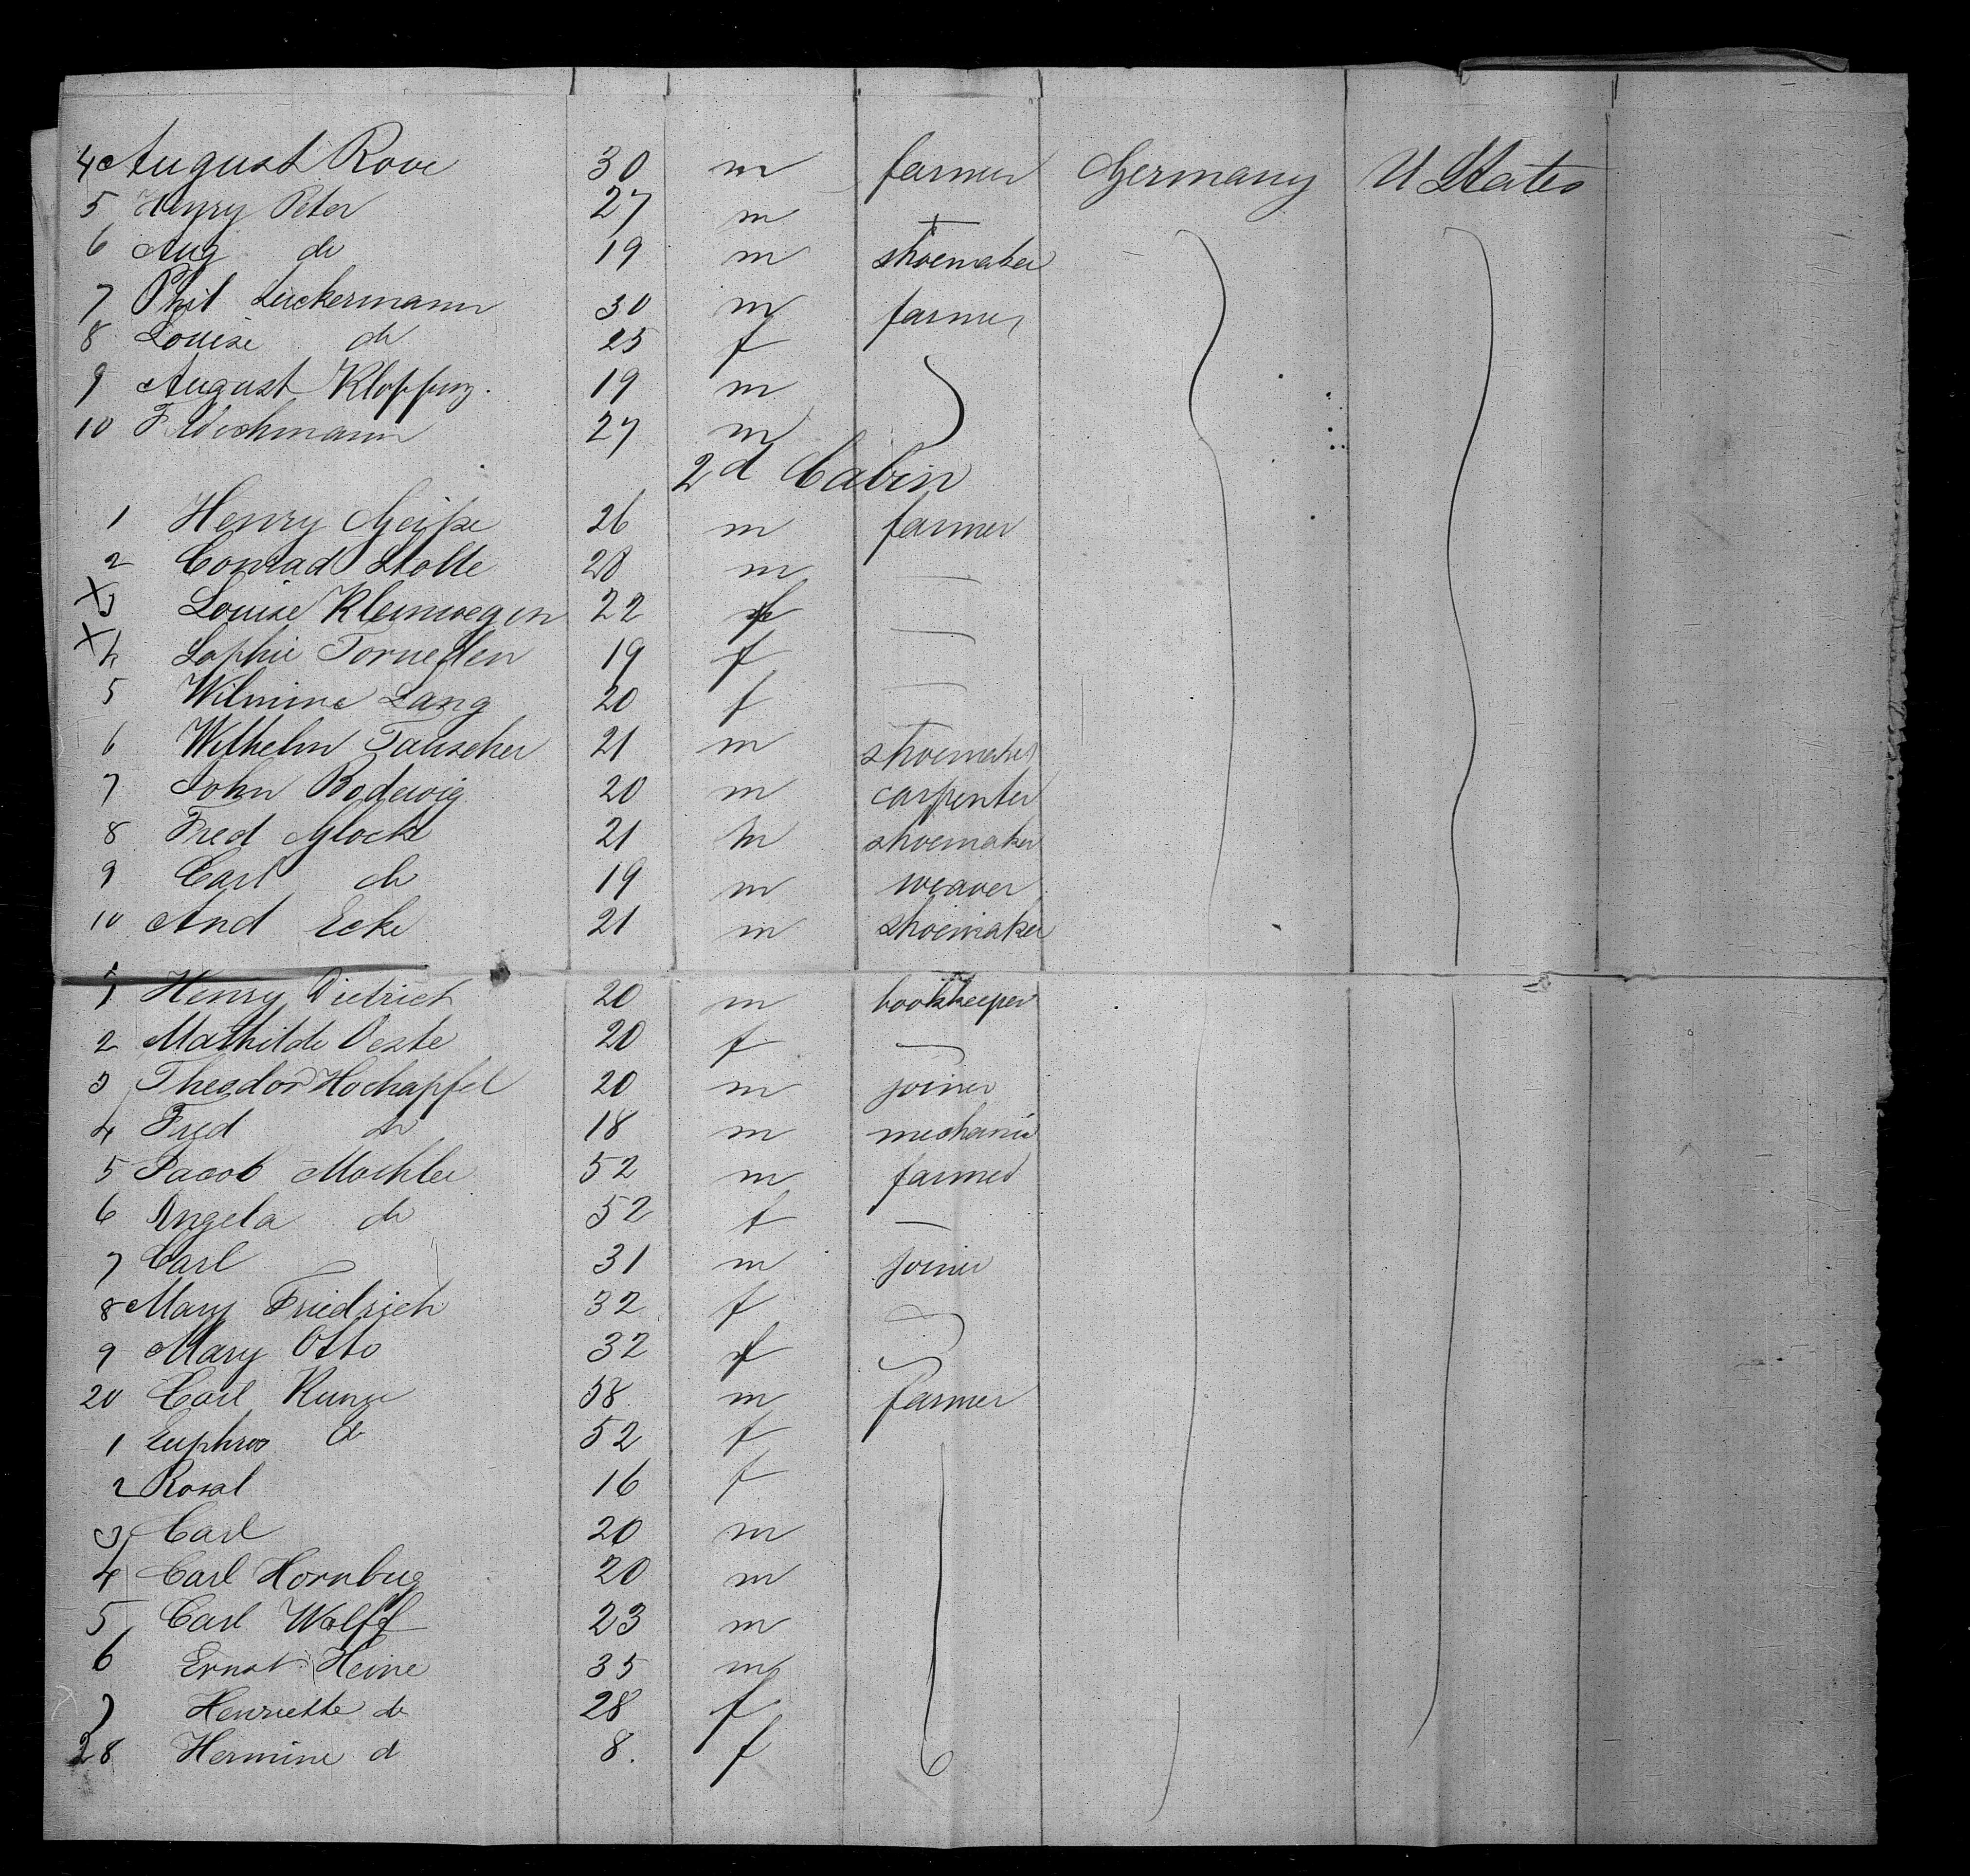 4 August Rove 30 m farmer Germany U States
5 Henry Peter 27 m —
6 Aug do 19 m shoemaker
7 Phil Luckermann 30 m farmer
8 Louise do 25 f
9 August Klopping. 19 m
10 F Wichmann 27 m
2d Cabin
1 Henry 26 m farmer
2 Conrad Stolte 28 m —
3 Louise Kleinwegen 22 f —
4 Sophie Forneden 19 f —
5 Wilmine Lang 20 f —
6 Wilhelm Tauscher 21 m shoemaker
7 John Bodewig 20 m carpenter
8 Fred Glocke 21 m shoemaker
9 Carl do 19 m weaver
10 And Ecke 21 m shoemaker
1 Henry Dietrich 20 m bookkeeper
2 Mathilde Oeste 20 f —
3 Theodor Hochapfel 20 m joiner
4 Fred do 18 m mechanic
5 Jacob Mochler 52 m farmer
6 Angela do 52 f —
7 Carl 31 m joiner
8 Mary Friedrich 32 f
9 Mary Otto 32 f
20 Carl Kunze 58 m farmer
1 Euphros do 52 f
2 Rosal 16 f
3 Carl 20 m
4 Carl Hornbug 20 m
5 Carl Wolff 23 m
6 Ernst Heine 35 m
7 Henriette do 28 f
28 Hermine d 8. f